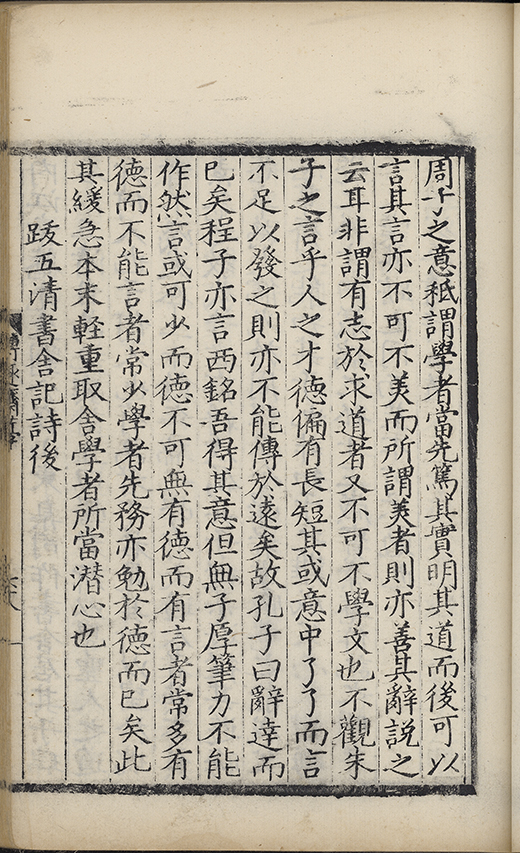 周子之意秪謂學者當先篤其實明其道而後可以
言其言亦不可不美而所謂美者則亦善其辭說之
云耳非謂有志於求道者又不可不學文也不觀朱
子之言乎人之才德偏有長短其或意中了了而言
不足以發之則亦不能傳於遠矣故孔子曰辭達而
已矣程子亦言西銘吾得其意但無子厚筆力不能
作然言或可少而德不可無有德而有言者常多有
德而不能言者常少學者先務亦勉於德而已矣此
其緩急本末輊重取舍學者所當潛心也
跋五清書舍記詩後